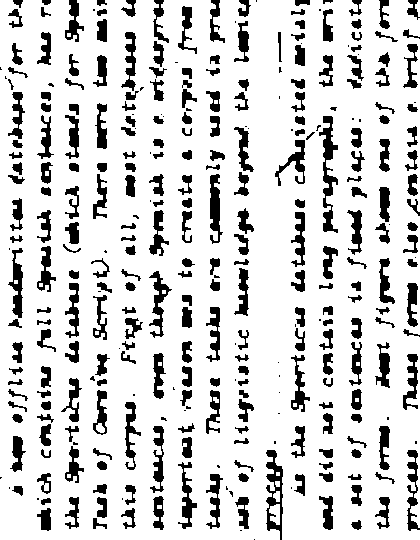 A new offline handwritten database for the
which contains full Spanish sentences, has re
the Spartacus database (which stands for Spa
Task of Cursive Script). There were two mai
this corpus. First of all, most databases do
sentences, even though Spanish is a widesprea
important reason was to create a corpus from
tasks. These tasks are commonly used in prac
use of linguistic knowledge beyond the lexico
process.
As the Spartacus database consisted mainly
and did not contain long paragraphs, the wri
a set of sentences in fixed places: dedicate
the forms. Next figure shows one of the form
process. These forms also contain a brief s